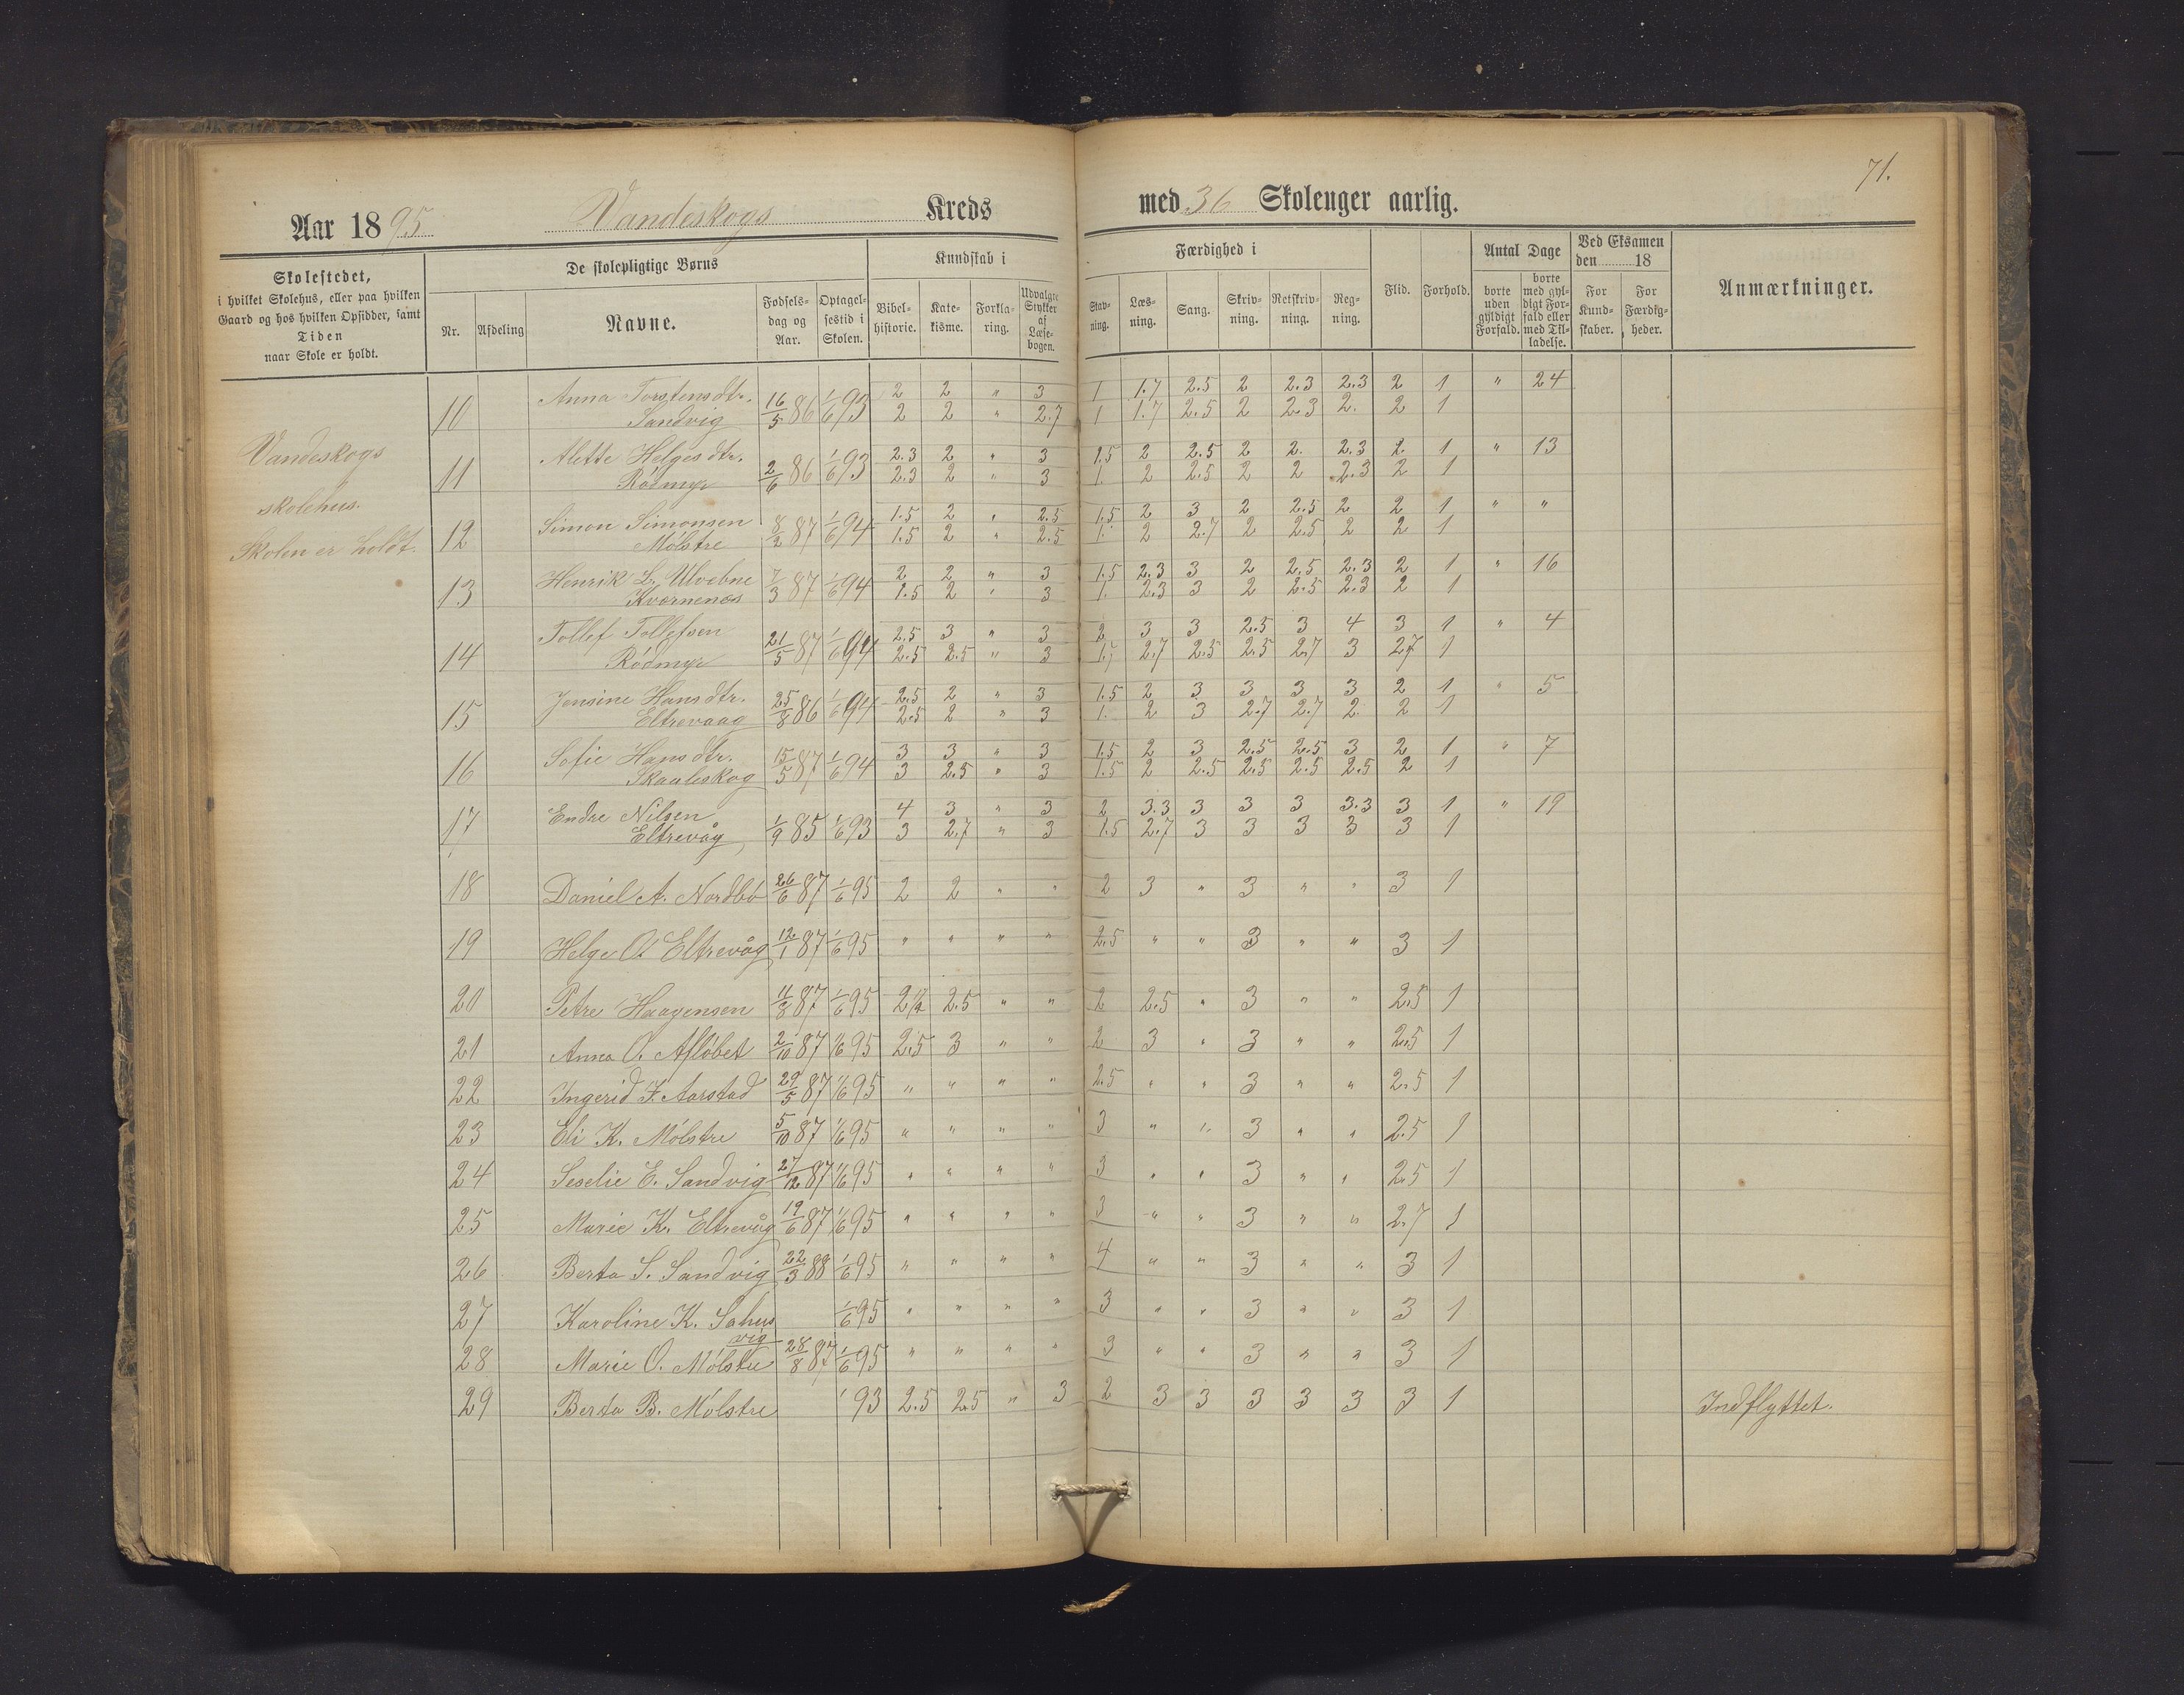 71.
Aar 1895 Vandeskogs Kreds med 36 Skoleuger aarlig.
Skolestedet,
i hvilket Skolehus, eller paa hvilken
Gaard og hos hvilken Opsidder, samt
Tiden
naar Skole er holdt.
De skolepligtige Børns
Nr. Afdeling Navne. Fødselsdag og Aar. Optagelsestid i Skolen.
Kundskab i
Bibelhistorie. Katekisme. Forklaring. Udvalgte Stykker af Læsebogen.
Færdighed i
Stavning. Læsning. Sang. Skrivning. Retskrivning. Regning.
Flid. Forhold.
Antal Dage
borte uden gyldigt Forfald. borte med gyldigt Forfald eller med Tilladelse.
Ved Eksamen den 18
For Kundskaber. For Færdigheder.
Anmærkninger.
Vandeskogs
skolehus.
Skolen er holdt.
10 Anna Torstensdtr. 16/5 86 1/6 93 2 2 " 3 1 1.7 2.5 2 2.3 2.3 2 1 " 24
Sandvig 2 2 " 2.7 1 1.7 2.5 2 2.3 2. 2 1
11 Alette Helgesdtr. 2/6 86 1/6 93 2.3 2 " 3 1.5 2 2.5 2 2. 2.3 2 1 " 13
Rödmyr 2.3 2 " 3 1. 2 2.5 2 2 2.3 2 1
12 Simon Simonsen 8/2 87 1/6 94 1.5 2 " 2.5 1.5 2 3 2 2.5 2 2 1 " "
Mölstre 1.5 2 " 2.5 1. 2 2.7 2 2.5 2 2 1
13 Henrik L. Ulvebne 7/3 87 1/6 94 2 2 " 3 1.5 2.3 3 2 2.5 2.3 2 1 " 16
Kvernenes 1.5 2 " 3 1. 2.3 3 2 2.5 2.3 2 1
14 Tollef Tollefsen 21/5 87 1/6 94 2.5 3 " 3 2 3 3 2.5 3 4 3 1 " 4
Rödmyr 2.5 2.5 " 3 1.7 2.7 2.5 2.5 2.7 3 2.7 1
15 Jensine Hansdtr. 25/8 86 1/6 94 2.5 2 " 3 1.5 2 3 3 3 3 2 1 " 5
Eltrevaag 2.5 2 " 3 1. 2 3 2.7 2.7 2 2 1
16 Sofie Hansdtr. 15/5 87 1/6 94 3 3 " 3 1.5 2 3 2.5 2.5 3 2 1 " 7
Skaaleskog 3 2.5 " 3 1.5 2 2.5 2.5 2.5 2.5 2 1
17 Endre Nilsen 1/9 85 1/6 93 4 3 " 3 2 3.3 3 3 3 3.3 3 1 " 19
Eltrevåg 3 2.7 " 3 1.5 2.7 3 3 3 3 3 1
18 Daniel A. Nordbö 26/6 87 1/6 95 2 2 " " 2 3 " 3 " " 3 1
19 Helge O. Eltrevåg 12/1 87 1/6 95 " " " " 2.5 " " 3 " " 3 1
20 Petre Haagensen 11/3 87 1/6 95 2 2.5 " " 2 2.5 " 3 " " 2.5 1
21 Anna O. Aflöbet 2/10 87 1/6 95 2.5 3 " " 2 3 " 3 " " 2.5 1
22 Ingerid J. Aarstad 29/5 87 1/6 95 " " " " 2.5 " " 3 " " 2.5 1
23 Eli K. Mölstre 5/10 87 1/6 95 " " " " 3 " " 3 " " 2.5 1
24 Seselie E. Sandvig 27/12 87 1/6 95 " " " " 3 " " 3 " " 2.5 1
25 Marie K. Eltrevåg 19/6 87 1/6 95 " " " " 3 " " 3 " " 2.7 1
26 Berta S. Sandvig 22/3 88 1/6 95 " " " " 4 " " 3 " " 3 1
27 Karoline K. Sahus 1/6 95 " " " " 3 " " 3 " " 3 1
vig
28 Marie O. Mölstre 28/8 87 1/6 95 " " " " 3 " " 3 " " 3 1
29 Berta B. Mölstre 93 2.5 2.5 " 3 2 3 3 3 3 3 3 1 Indflyttet.